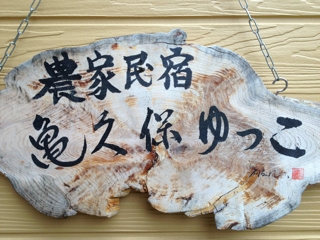 農家民宿
亀久保ゆっこ